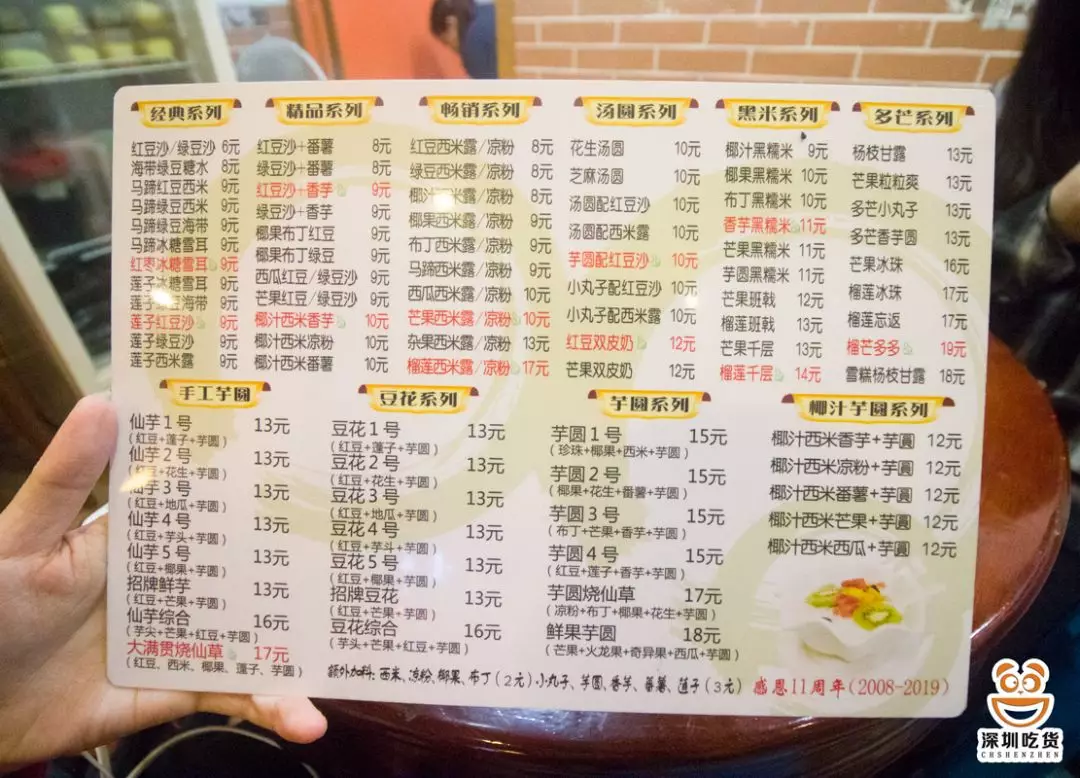 经典系列
红豆沙/绿豆沙 8元
海带绿豆糖水 8元
马蹄红豆西米 9元
马蹄绿豆西米 9元
马蹄绿豆海带 9元
马蹄冰糖雪耳 9元
红枣冰糖雪耳 9元
莲子冰糖雪耳 9元
莲子绿豆海带 9元
莲子红豆沙 9元
莲子绿豆沙 9元
莲子西米露 9元
精品系列
红豆沙+番薯 8元
绿豆沙+番薯 8元
红豆沙+香芋 9元
绿豆沙+香芋 9元
椰果布丁红豆 9元
椰果布丁绿豆 9元
西瓜红豆/绿豆沙 9元
芒果红豆/绿豆沙 9元
椰汁西米香芋 10元
椰汁西米凉粉 10元
椰汁西米番薯 10元
畅销系列
红豆西米露/凉粉 8元
绿豆西米露/凉粉 8元
椰汁西米露/凉粉 8元
椰果西米露/凉粉 9元
布丁西米露/凉粉 9元
马蹄西米露/凉粉 9元
西瓜西米露/凉粉 10元
芒果西米露/凉粉 10元
杂果西米露/凉粉 13元
榴莲西米露/凉粉 17元
汤圆系列
花生汤圆 10元
芝麻汤圆 10元
汤圆配红豆沙 10元
汤圆配西米露 10元
芋圆配红豆沙 10元
小丸子配红豆沙 10元
小丸子配西米露 10元
红豆双皮奶 12元
芒果双皮奶 12元
黑米系列
椰汁黑糯米 9元
椰果黑糯米 10元
布丁黑糯米 10元
香芋黑糯米 11元
芒果黑糯米 11元
芋圆黑糯米 11元
芒果班戟 12元
榴莲班戟 13元
芒果千层 13元
榴莲千层 14元
多芒系列
杨枝甘露 13元
芒果粒粒爽 13元
多芒小丸子 13元
多芒香芋圆 13元
芒果冰珠 16元
榴莲冰珠 17元
榴莲忘返 17元
榴芒多多 19元
雪糕杨枝甘露 18元
手工芋圆
仙芋1号 13元
(红豆+莲子+芋圆)
仙芋2号 13元
(红豆+花生+芋圆)
仙芋3号 13元
(红豆+地瓜+芋圆)
仙芋4号 13元
(红豆+芋头+芋圆)
仙芋5号 13元
(红豆+椰果+芋圆)
招牌鲜芋 13元
(红豆+芒果+芋圆)
仙芋综合 16元
(芋尖+芒果+红豆+芋圆)
大满贯烧仙草 17元
(红豆、西米、椰果、莲子、芋圆)
豆花系列
豆花1号 13元
(红豆+莲子+芋圆)
豆花2号 13元
(红豆+花生+芋圆)
豆花3号 13元
(红豆+地瓜+芋圆)
豆花4号 13元
(红豆+芋头+芋圆)
豆花5号 13元
(红豆+椰果+芋圆)
招牌豆花 13元
(红豆+芒果+芋圆)
豆花综合 16元
(芋头+芒果+红豆+芋圆)
芋圆系列
芋圆1号 15元
(珍珠+椰果+西米+芋圆)
芋圆2号 15元
(椰果+花生+番薯+芋圆)
芋圆3号 15元
(布丁+芒果+香芋+芋圆)
芋圆4号 15元
(红豆+莲子+香芋+芋圆)
芋圆烧仙草 17元
(凉粉+布丁+椰果+花生+芋圆)
鲜果芋圆 18元
(芒果+火龙果+奇异果+西瓜+芋圆)
椰汁芋圆系列
椰汁西米香芋+芋圓 12元
椰汁西米凉粉+芋圓 12元
椰汁西米番薯+芋圓 12元
椰汁西米芒果+芋圓 12元
椰汁西米西瓜+芋圓 12元
额外加料: 西米、凉粉、椰果、布丁(2元)小丸子、芋圆、香芋、番薯、莲子(3元) 感恩11周年(2008-2019)
深圳吃货
CHSHENZHEN